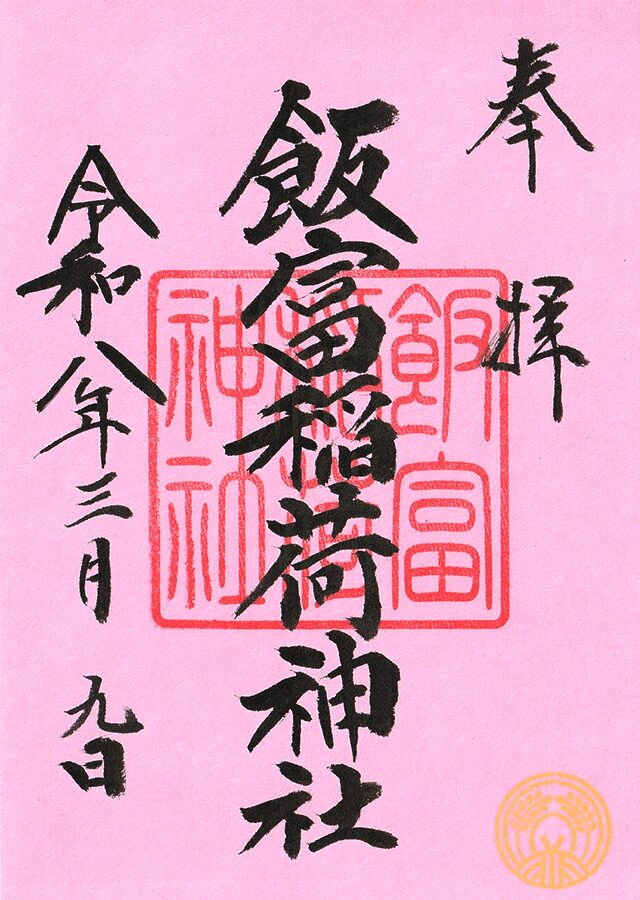 奉拝
飯富稲荷神社
飯富
稲荷
神社
令和八年三月九日